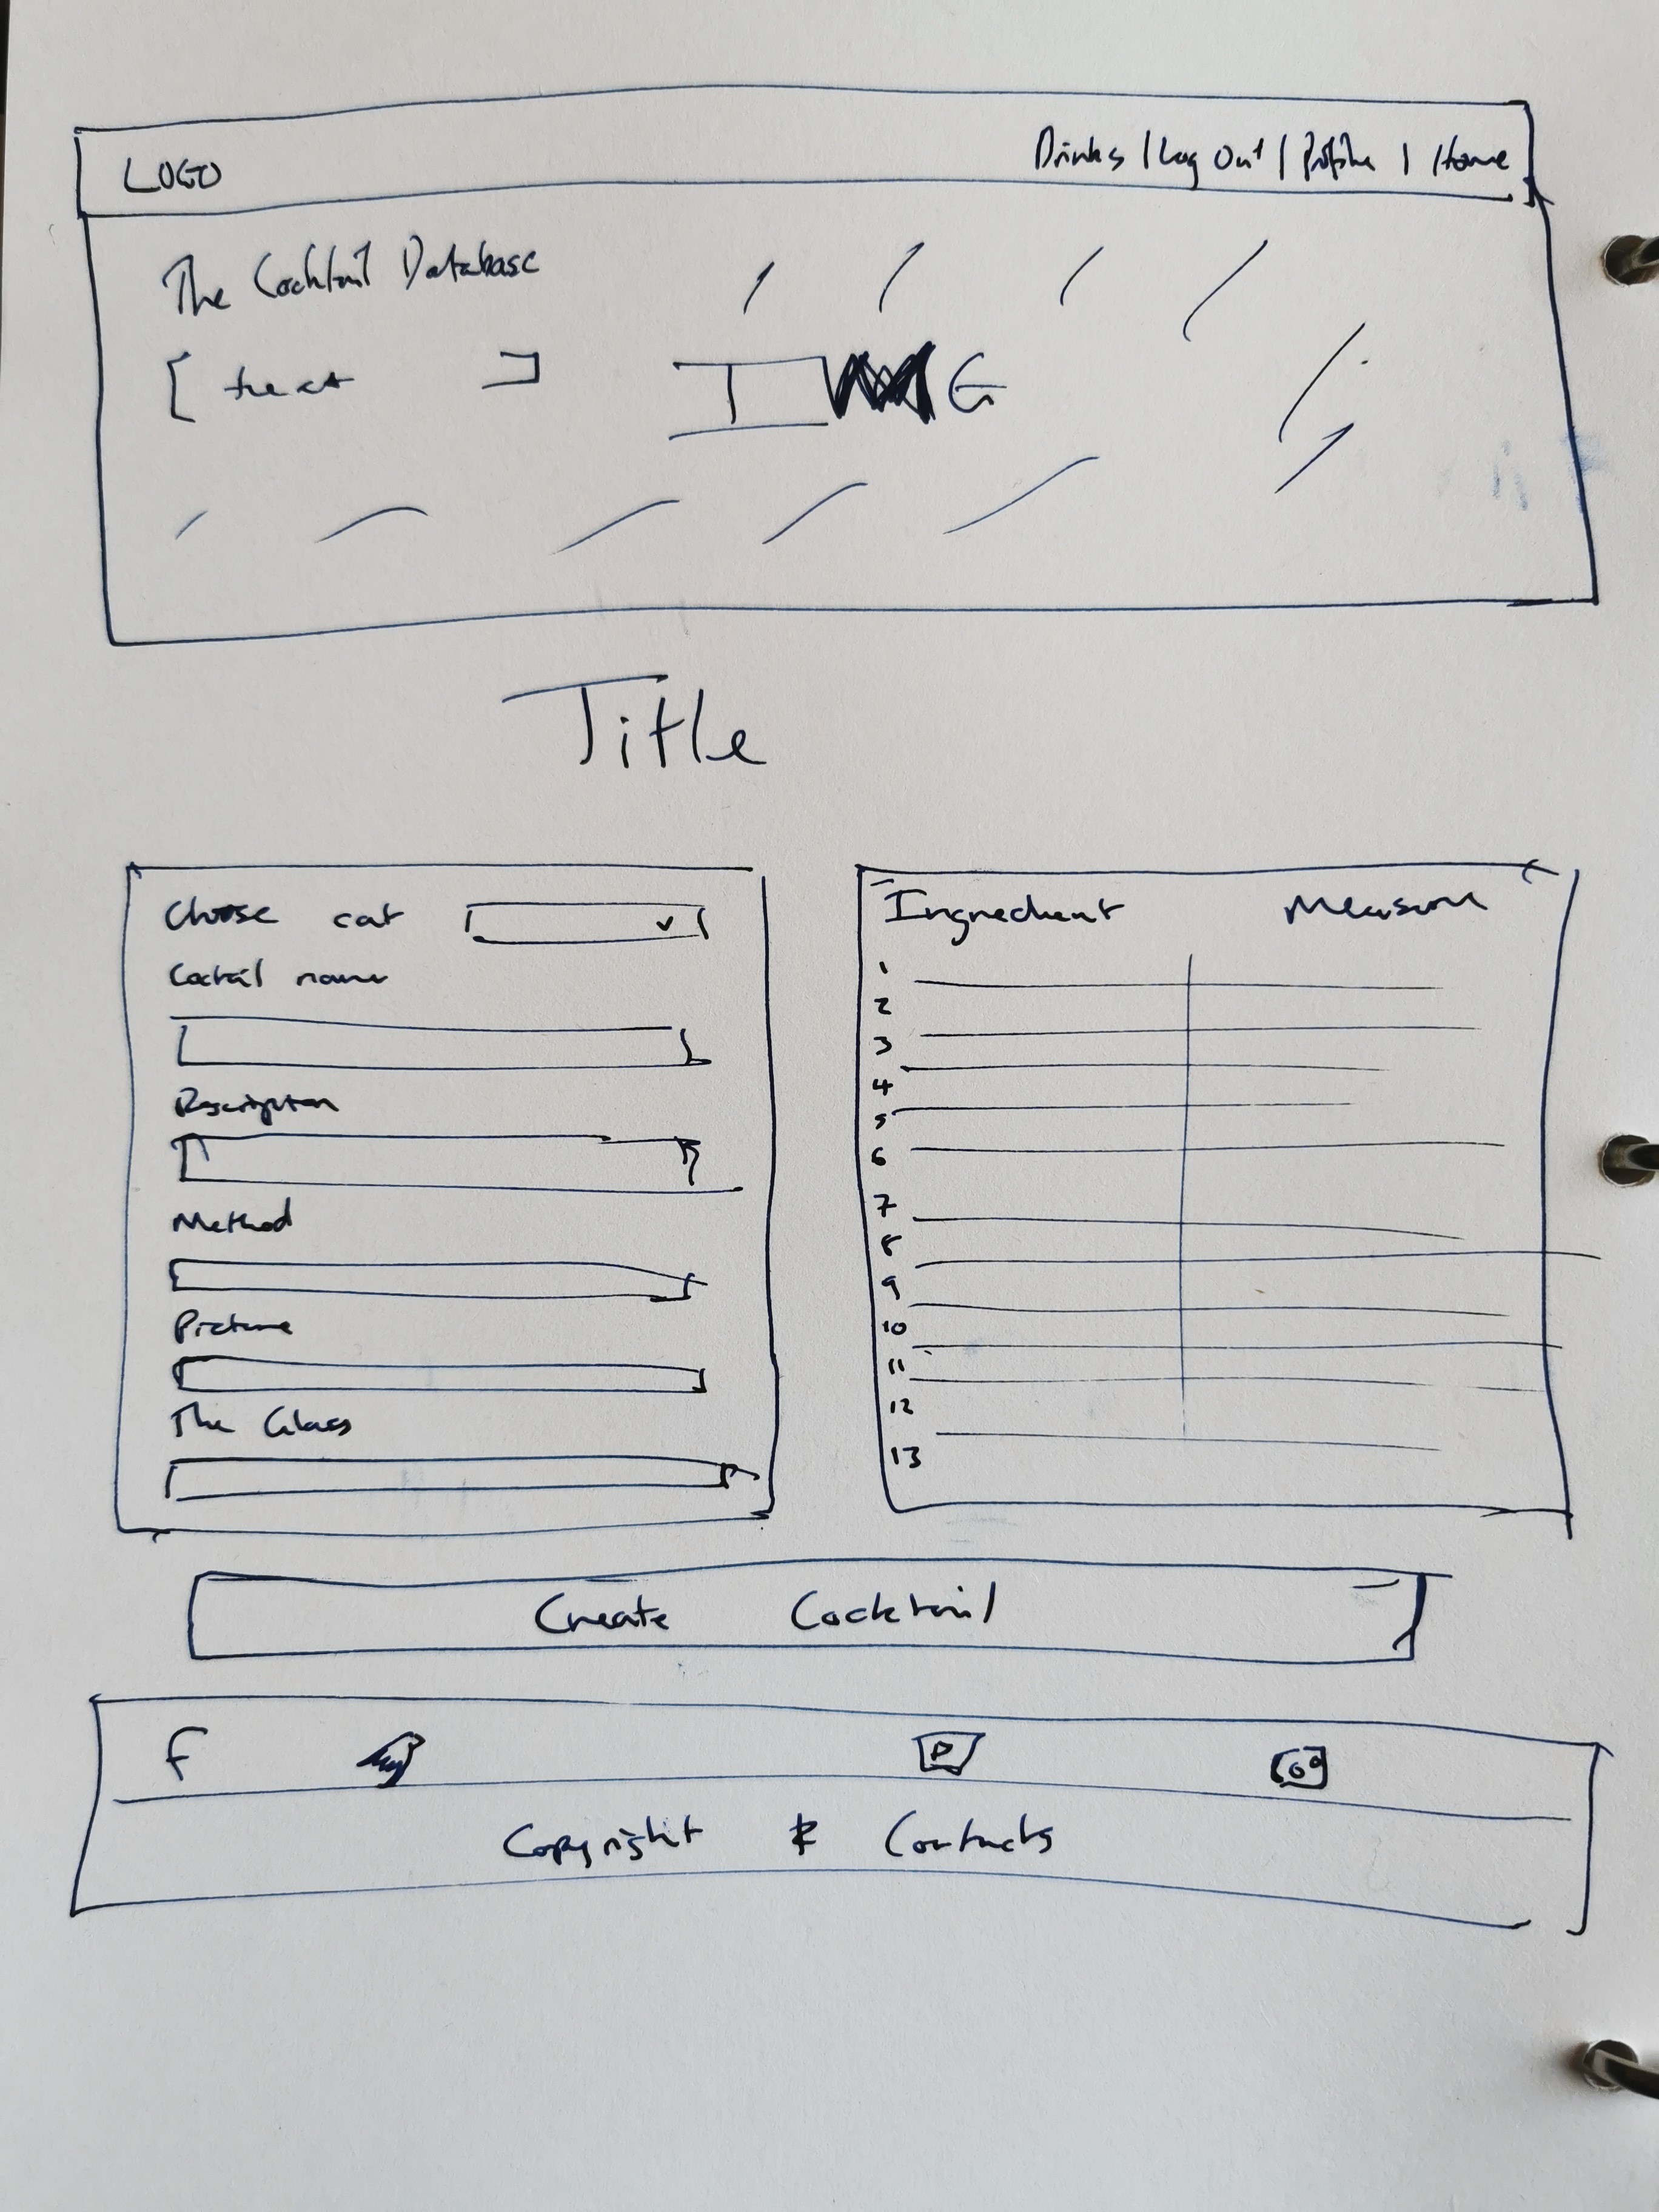 LOGO Drinks | Log Out | Profile | Home
The Cocktail Database
[ ]
I G
Title
Choose cat
Coctail name
Description
Method
Picture
The Glass
Ingredient Measure
1
2
3
4
5
6
7
8
9
10
11
12
13
Create Cocktail
f
Copyright & Contacts